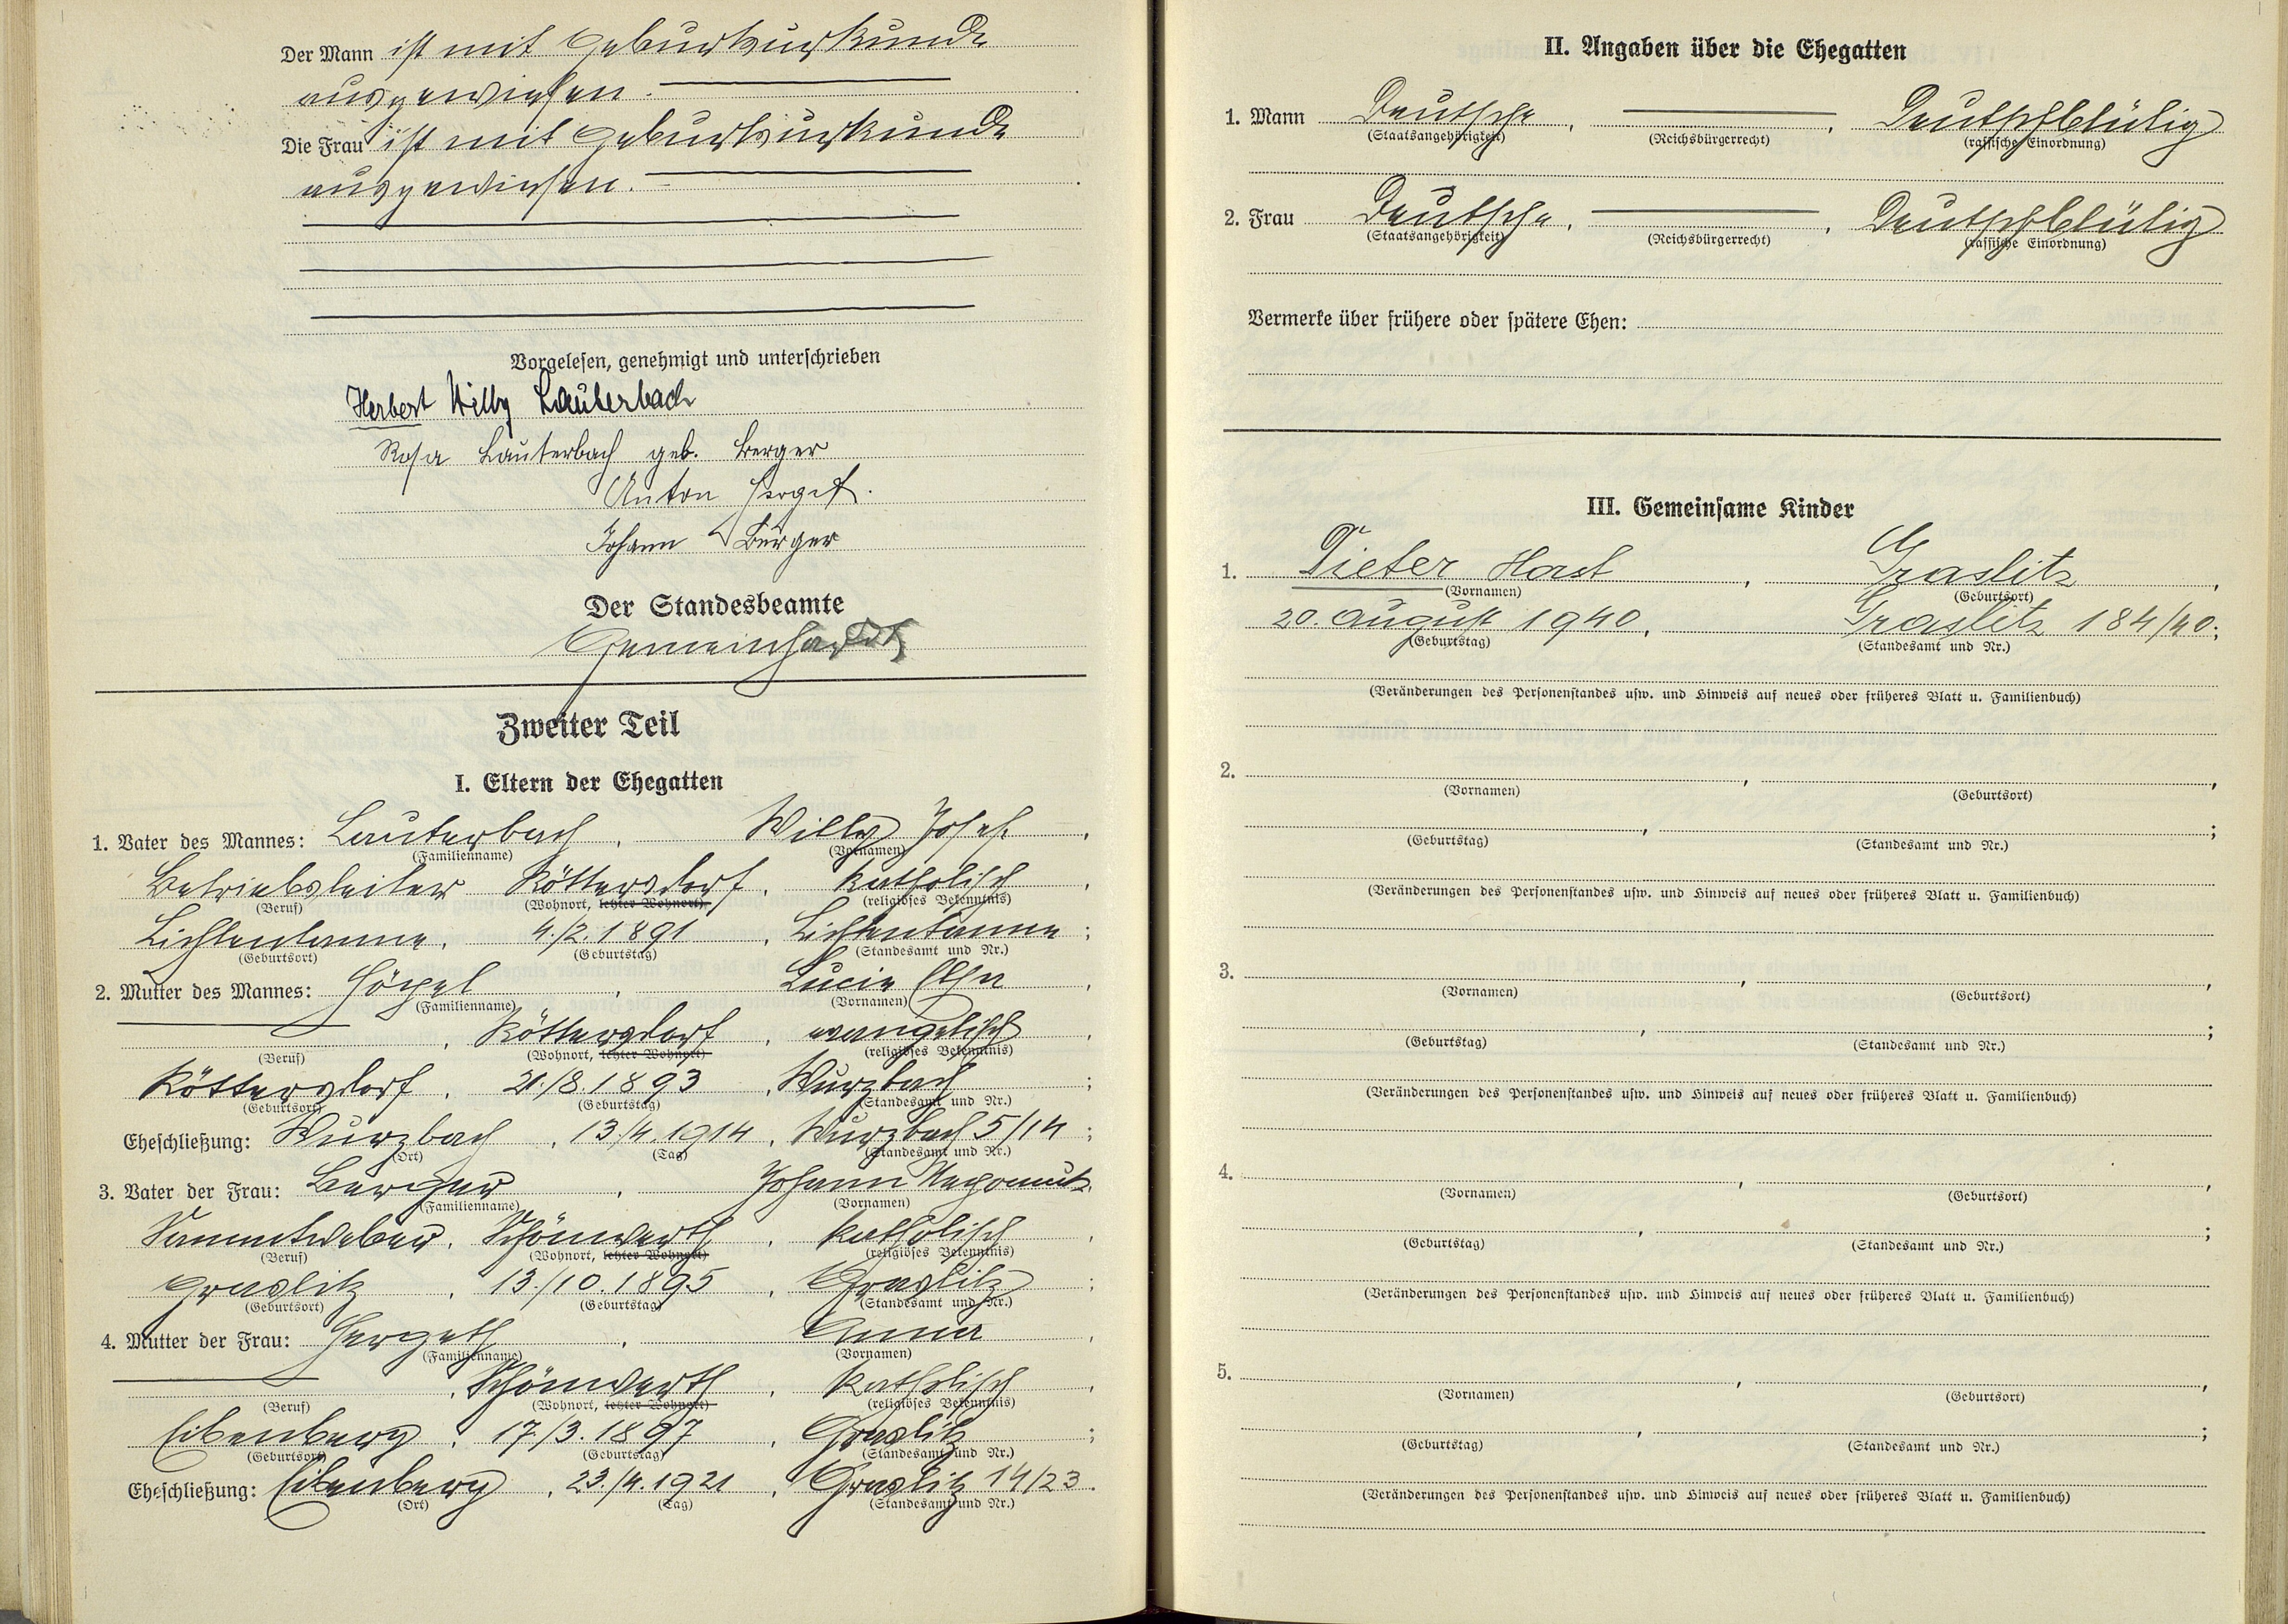 Der Mann ist mit Geburtsurkunde
ausgewiesen.
Die Frau ist mit Geburtsurkunde
ausgewiesen.
Vorgelesen, genehmigt und unterschrieben
Herbert Willy Lauterbach
Rosa Lauterbach geb. Berger
Anton
Johann Berger
Der Standesbeamte
Gemeinhardt
Zweiter Teil
I. Eltern der Ehegatten
1. Vater des Mannes: Lauterbach, Willy Josef,
(Familienname) (Vornamen)
Betriebsleiter Röttersdorf, katholisch,
(Beruf) (Wohnort, letzter Wohnort) (religiöses Bekenntnis)
Lichtentanne, 4./2.1891, Lichtentanne;
(Geburtsort) (Geburtstag) (Standesamt und Nr.)
2. Mutter des Mannes: Höpel, Lucie Elsa,
(Familienname) (Vornamen)
, Röttersdorf, evangelisch,
(Beruf) (Wohnort, letzter Wohnort) (religiöses Bekenntnis)
Röttersdorf, 21./8.1893, Wurzbach;
(Geburtsort) (Geburtstag) (Standesamt und Nr.)
Eheschließung: Wurzbach, 13./4.1914, Wurzbach 5/14;
(Ort) (Tag) (Standesamt und Nr.)
3. Vater der Frau: Berger, Johann Nepomuk,
(Familienname) (Vornamen)
Sammtweber, Schönwerth, katholisch,
(Beruf) (Wohnort, letzter Wohnort) (religiöses Bekenntnis)
Graslitz, 13./10.1895, Graslitz;
(Geburtsort) (Geburtstag) (Standesamt und Nr.)
4. Mutter der Frau: Hergeth, Anna,
(Familienname) (Vornamen)
, Schönwerth, katholisch,
(Beruf) (Wohnort, letzter Wohnort) (religiöses Bekenntnis)
Eibenberg, 17./3.1897, Graslitz;
(Geburtsort) (Geburtstag) (Standesamt und Nr.)
Eheschließung: Eibenberg, 23./4.1921, Graslitz 14/23.
(Ort) (Tag) (Standesamt und Nr.)
II. Angaben über die Ehegatten
1. Mann Deutsche, , Deutschblütig
(Staatsangehörigkeit) (Reichsbürgerrecht) (rassische Einordnung)
2. Frau Deutsche, , Deutschblütig
(Staatsangehörigkeit) (Reichsbürgerrecht) (rassische Einordnung)
Vermerke über frühere oder spätere Ehen:
III. Gemeinsame Kinder
1. Dieter Horst, Graslitz,
(Vornamen) (Geburtsort)
20. August 1940, Graslitz 184/40;
(Geburtstag) (Standesamt und Nr.)
(Veränderungen des Personenstandes usw. und Hinweis auf neues oder früheres Blatt u. Familienbuch)
2. , ,
(Vornamen) (Geburtsort)
, ;
(Geburtstag) (Standesamt und Nr.)
(Veränderungen des Personenstandes usw. und Hinweis auf neues oder früheres Blatt u. Familienbuch)
3. , ,
(Vornamen) (Geburtsort)
, ;
(Geburtstag) (Standesamt und Nr.)
(Veränderungen des Personenstandes usw. und Hinweis auf neues oder früheres Blatt u. Familienbuch)
4. , ,
(Vornamen) (Geburtsort)
, ;
(Geburtstag) (Standesamt und Nr.)
(Veränderungen des Personenstandes usw. und Hinweis auf neues oder früheres Blatt u. Familienbuch)
5. , ,
(Vornamen) (Geburtsort)
, ;
(Geburtstag) (Standesamt und Nr.)
(Veränderungen des Personenstandes usw. und Hinweis auf neues oder früheres Blatt u. Familienbuch)